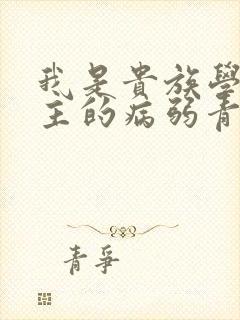 我是貴族學
主的病弱青
青爭